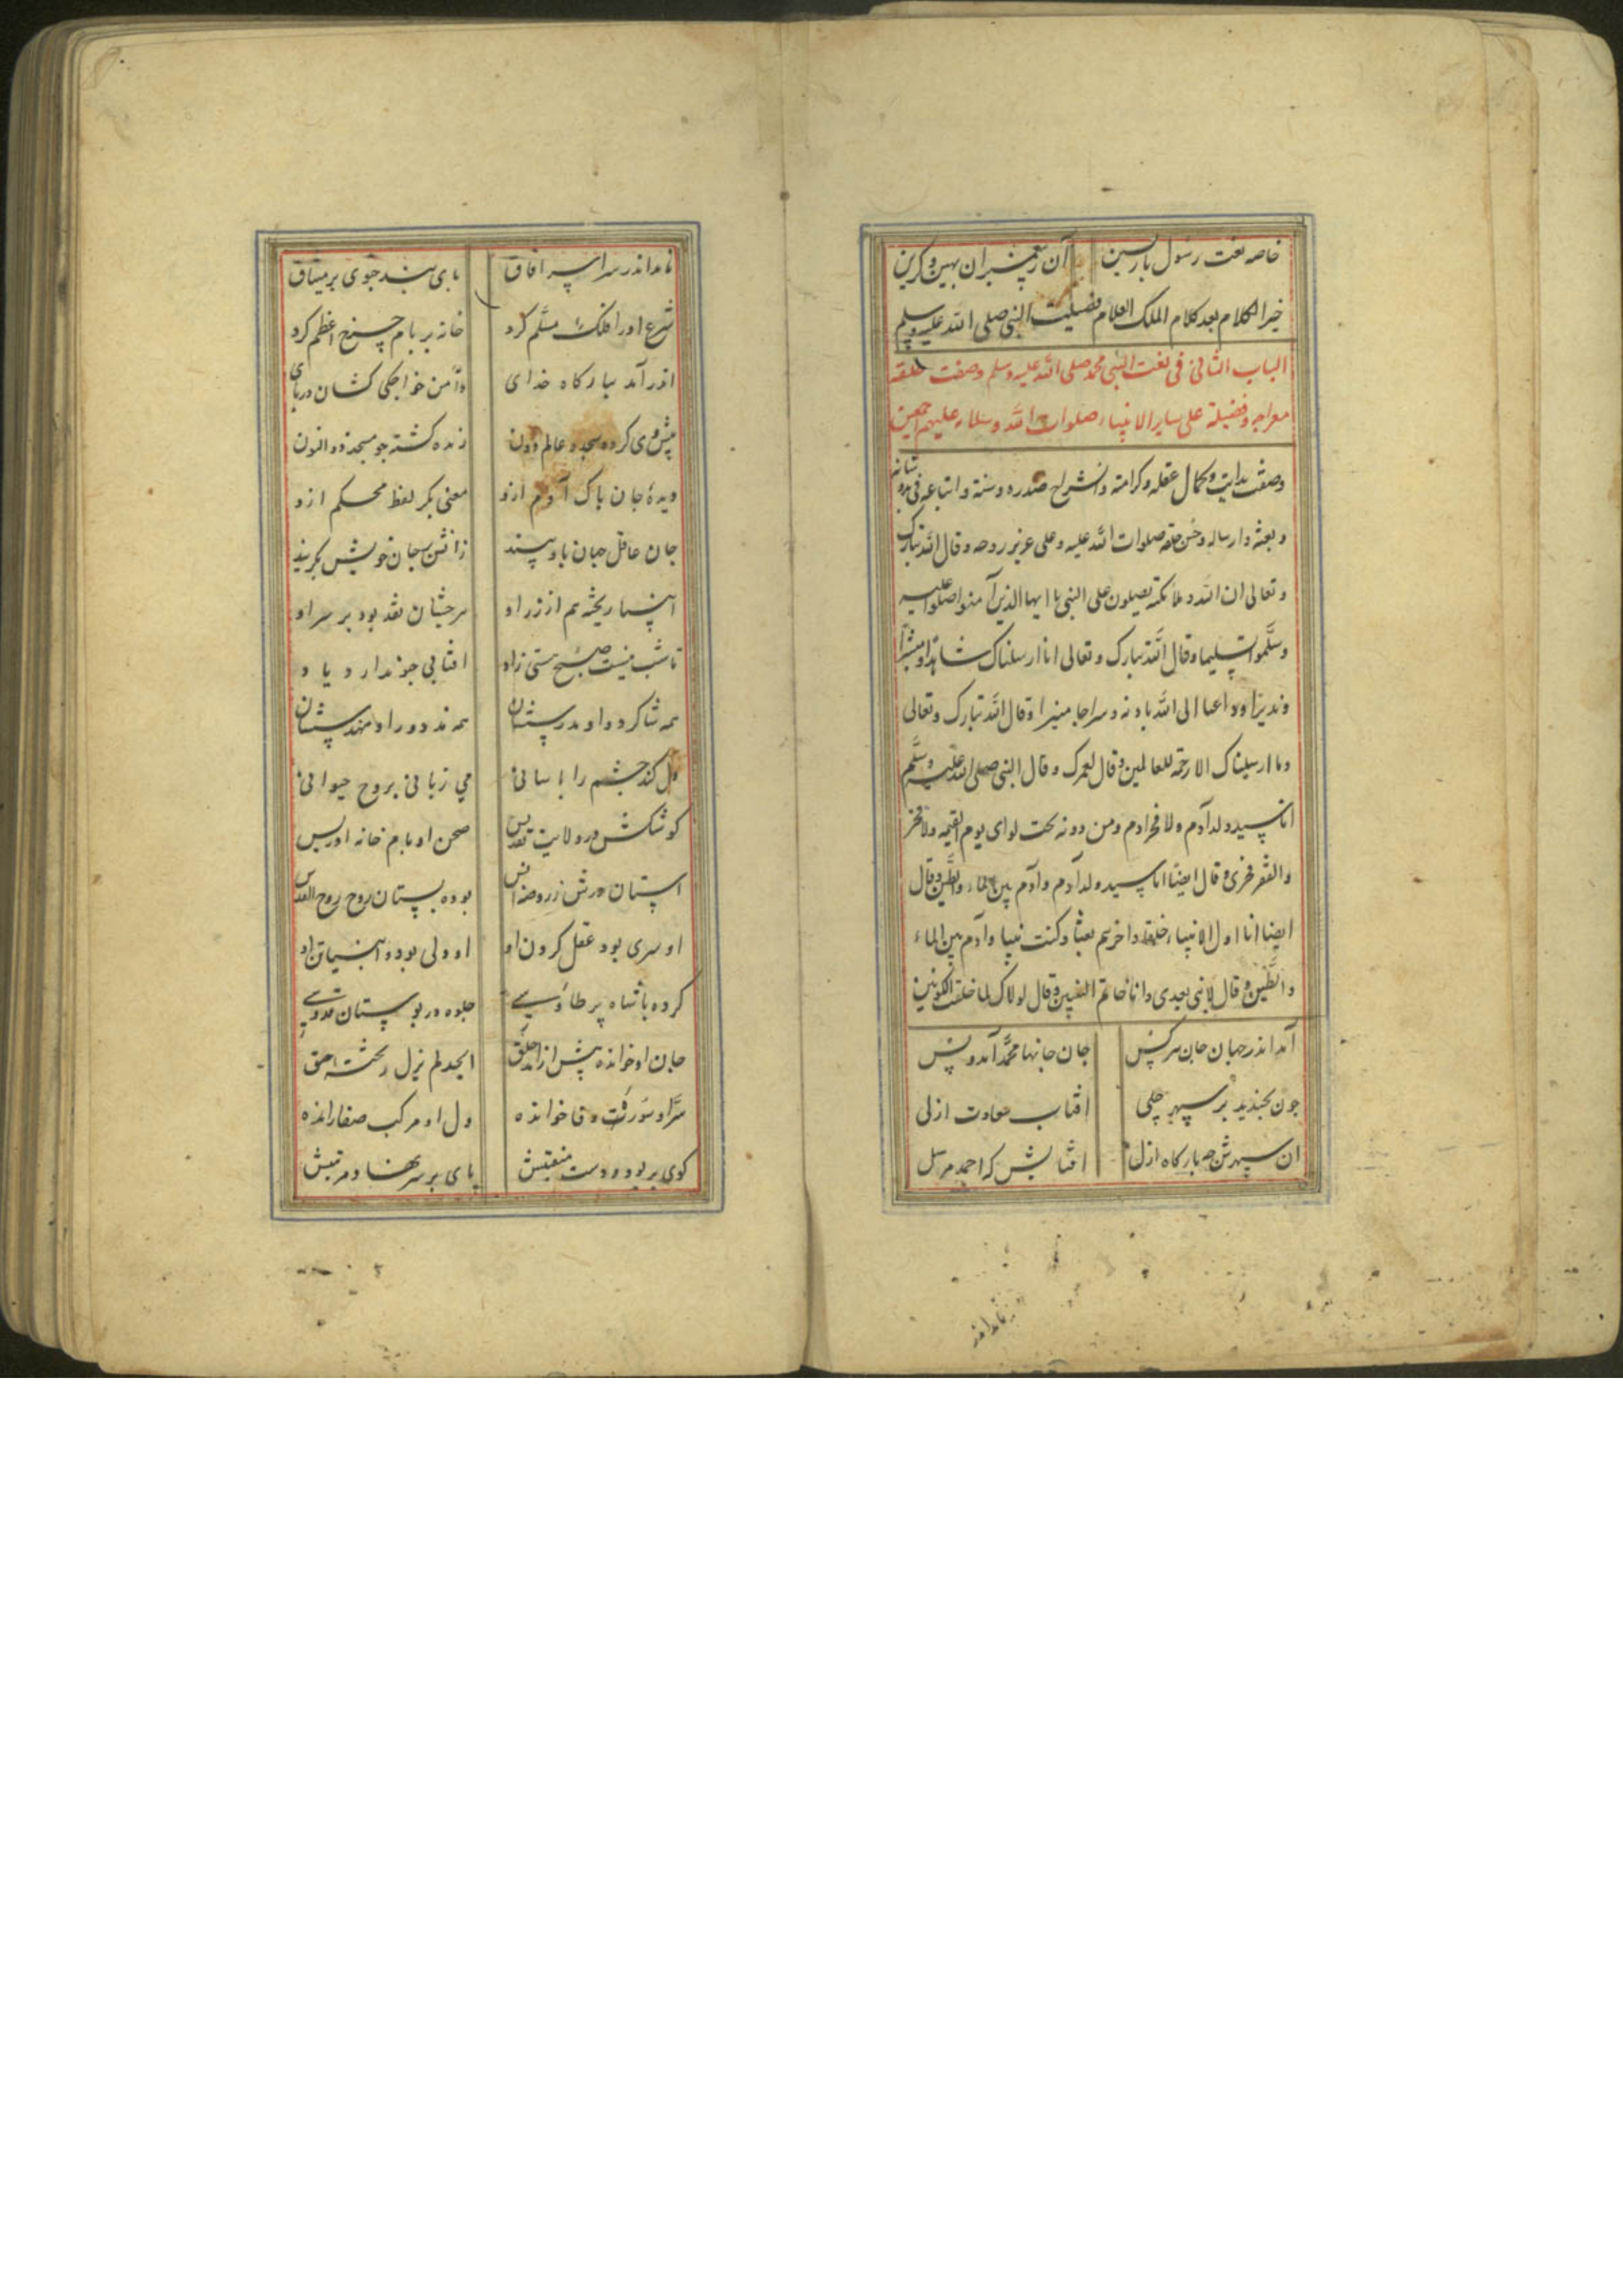 خاصه نعت رسول بازپسین آن ز پیغمبران بهین و گزین
خیر الکلام بعد کلام الملک العلام فضیلت النبی صلی الله علیه وسلم
الباب الثانی فی نعت النبی محمد صلی الله علیه وسلم وصفت خلقه
معراجه وفضیلة علی سایر الانبیاء صلوات الله وسلامه علیهم اجمعین
وصفت بدایت وکمال عقله وکرامته وانشراح صدره وسنة واتباعه فی
وبعثه وارساله وحسن خلقه صلوات الله علیه وعلی عزیز روحه وقال الله تبارک
وتعالی ان الله وملائکته یصلون علی النبی یا ایها الذین آمنوا صلوا علیه
وسلموا تسلیما وقال الله تبارک وتعالی انا ارسلناک شاهدا ومبشرا
ونذیرا وداعیا الی الله باذنه وسراجا منیرا وقال الله تبارک وتعالی
وما ارسلناک الا رحمة للعالمین وقال لعمرک وقال النبی صلی الله علیه وسلم
انا سید ولد آدم ولا فخر ادم ومن دونه تحت لوای یوم القیمه ولا فخر
والفقر فخری وقال ایضا انا سید ولد آدم وآدم بین الماء والطین وقال
ایضا انا اول الانبیاء خلقا واخرهم بعثا وکنت نبیا وآدم بین الماء
والطین وقال لا نبی بعدی وانا خاتم النبیین وقال لولاک لما خلقت الکونین
آمد اندر جهان جان هر کس جان جانها محمد آمد و بس
چون بخندید بر سپهر جلی افتاب سعادت ازلی
ان سپهرش چه بارکاه ازل افتابش که احمد مرسل
نامد اندر
نامد اندر سراسر افاق پای بند جوی بر میثاق
شرع او را فلک مسلم کرد خانه بر بام چرخ اعظم کرد
اندر آمد ببارکاه خدای دامن خواجکی کشان در پای
پیش وی کرده سجده عالم دون زنده کشته چو مسجد ذو النون
دیدهٔ جان پاک آدم ازو معنی بکر لفظ محکم ازو
جان عاقل جهان باو بیند زانش بجان خویش بکزیند
انبیا ریخته هم از زر او هرچشان نقد بود بر سر او
تا شب نیست صبح هستی زاد افتابی چنو ندارد یاد
همه شاکرد و او مدرسشان همه مزدور و او مهندسشان
دل کند جسم را باسانی بی زبانی بروح حیوانی
کوشکش در ولایت تقدیس صحن او بام خانه ادریس
استان درش ز روضه انس بوده بستان روح روح القدس
او سری بود عقل کردن او او دلی بود و انبیا تن او
کرده با شاه پر طاوسی جلوه در بوستان قدوسی
جان او خوانده پیش از خلق ابجد لم یزل ز تخته حق
سر او سورت وفا خوانده دل او مرکب صفا رانده
کوی بربود دست منقبتش پای بر سر نهاد مرتبتش